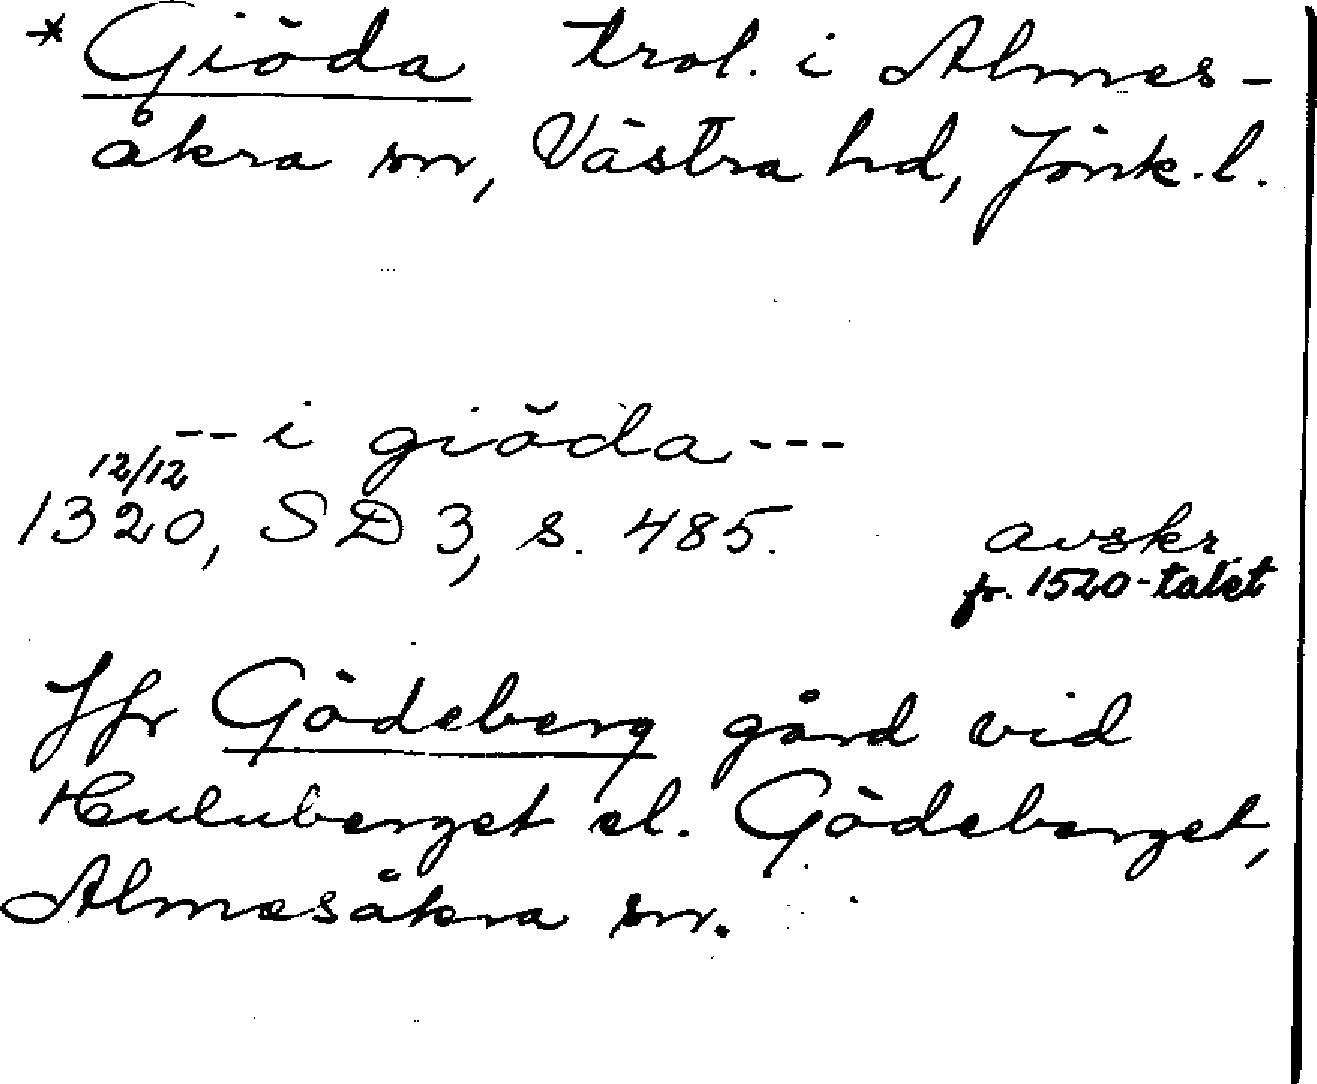 * Giöda trol. i Almes-
åkra sn, Västra hd, Jönk. l.
-- i giöda ---
12/12
1320, SD 3, s. 485. avskr.
fr. 1520-talet
Jfr Gödeberg gård vid
Huluberget el. Gödeberget,
Almesåkra sn.